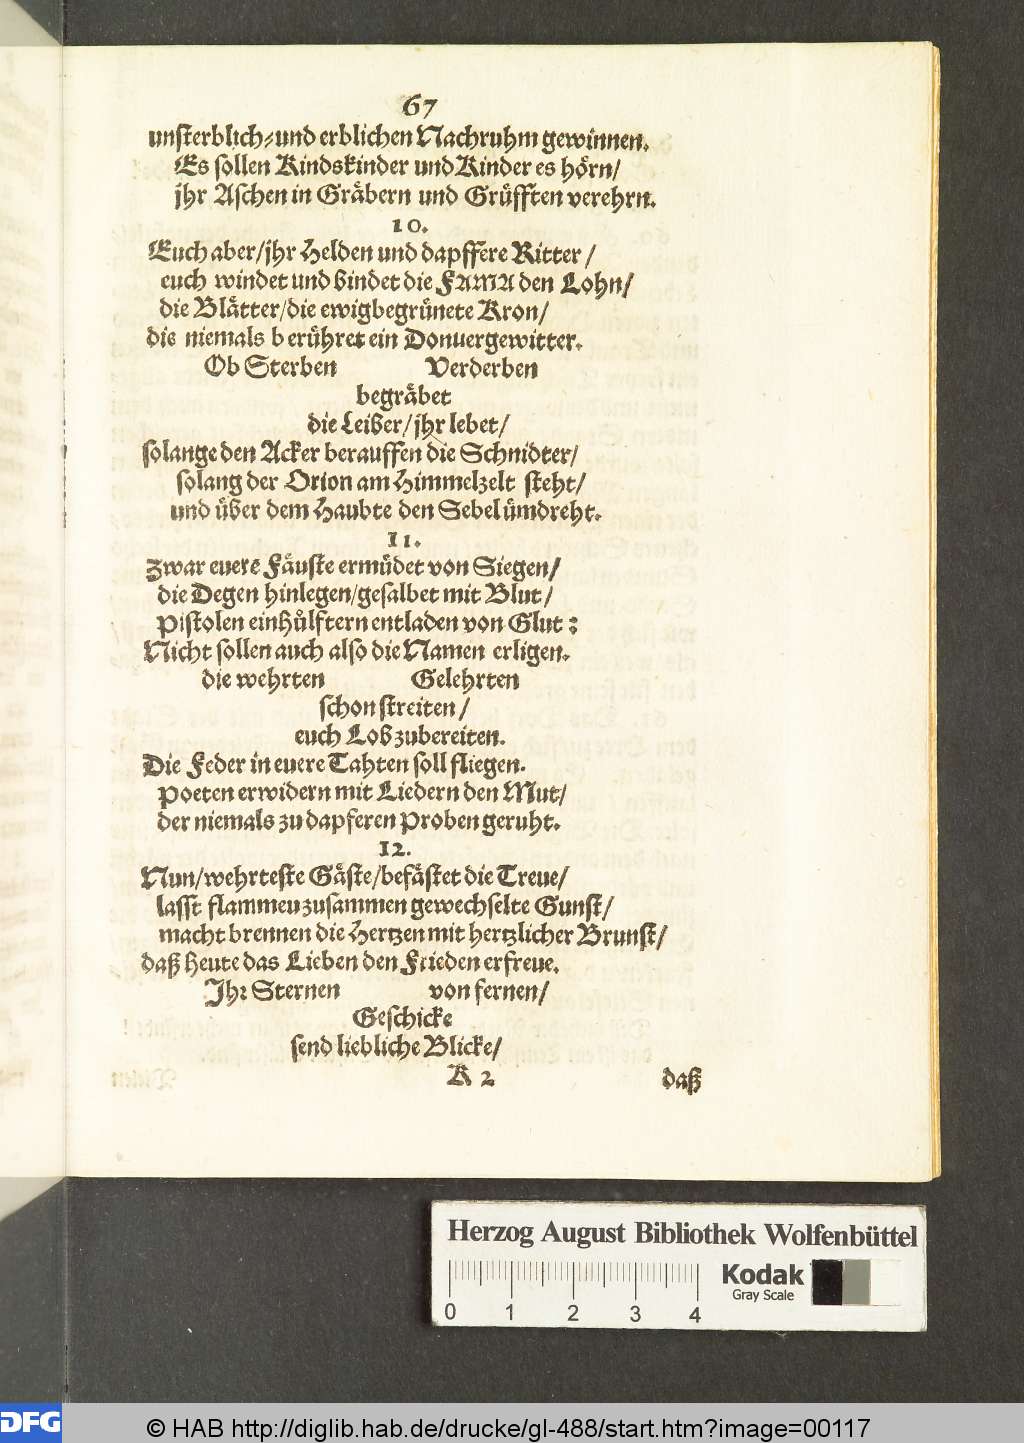 67
unsterblich-und erblichen Nachruhm gewinnen.
Es sollen Kindskinder und Kinder es hörn/
jhr Aschen in Gräbern und Grüfften verehrn.
10.
Euch aber/jhr Helden und dapffere Ritter/
euch windet und bindet die FAMA den Lohn/
die Blätter/die ewigbegrünete Kron/
die niemals berühret ein Donuergewitter.
Ob Sterben Verderben
begräbet
die Leiber/jhr lebet/
solange den Acker berauffen die Schnidter/
solang der Orion am Himmelzelt steht/
und über dem Haubte den Sebel ümdreht.
11.
Zwar euere Fäuste ermüdet von Siegen/
die Degen hinlegen/gesalbet mit Blut/
Pistolen einhülftern entladen von Glut:
Nicht sollen auch also die Namen erligen.
die wehrten Gelehrten
schon streiten/
euch Lob zubereiten.
Die Feder in euere Tahten soll fliegen.
Poeten erwidern mit Liedern den Mut/
der niemals zu dapferen Proben geruht.
12.
Nun/wehrteste Gäste/befästet die Treue/
lasst flammeu zusammen gewechselte Gunst/
macht brennen die Hertzen mit hertzlicher Brunst/
daß heute das Lieben den Frieden erfreue.
Jhr Sternen von fernen/
Geschicke
send liebliche Blicke/
K 2 daß
Herzog August Bibliothek Wolfenbüttel
Kodak
Gray Scale
0 1 2 3 4
DFG
© HAB http://diglib.hab.de/drucke/gl-488/start.htm?image=00117